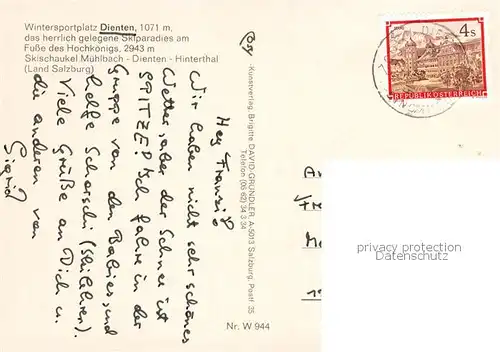 Wintersportplatz Dienten, 1071 m,
das herrlich gelegene Skiparadies am
Fuße des Hochkönigs, 2943 m
Skischaukel Mühlbach - Dienten - Hinterthal
(Land Salzburg)
Hey Franzi!
Wir haben nicht sehr schönes
Wetter, aber der Schnee ist
SPITZE! Ich fahre in der
Gruppe von den Babies, und
helfe Scharschi (Skilehrer).
Viele Grüße an Dich u.
die anderen von
Sigrid
Kunstverlag: Brigitte DAVID-GRÜNDLER, A-5013 Salzburg, Postf. 35
Telefon (06 62) 34 3 34
Nr. W 944
4 S
REPUBLIK ÖSTERREICH
privacy protection
oldthing.de